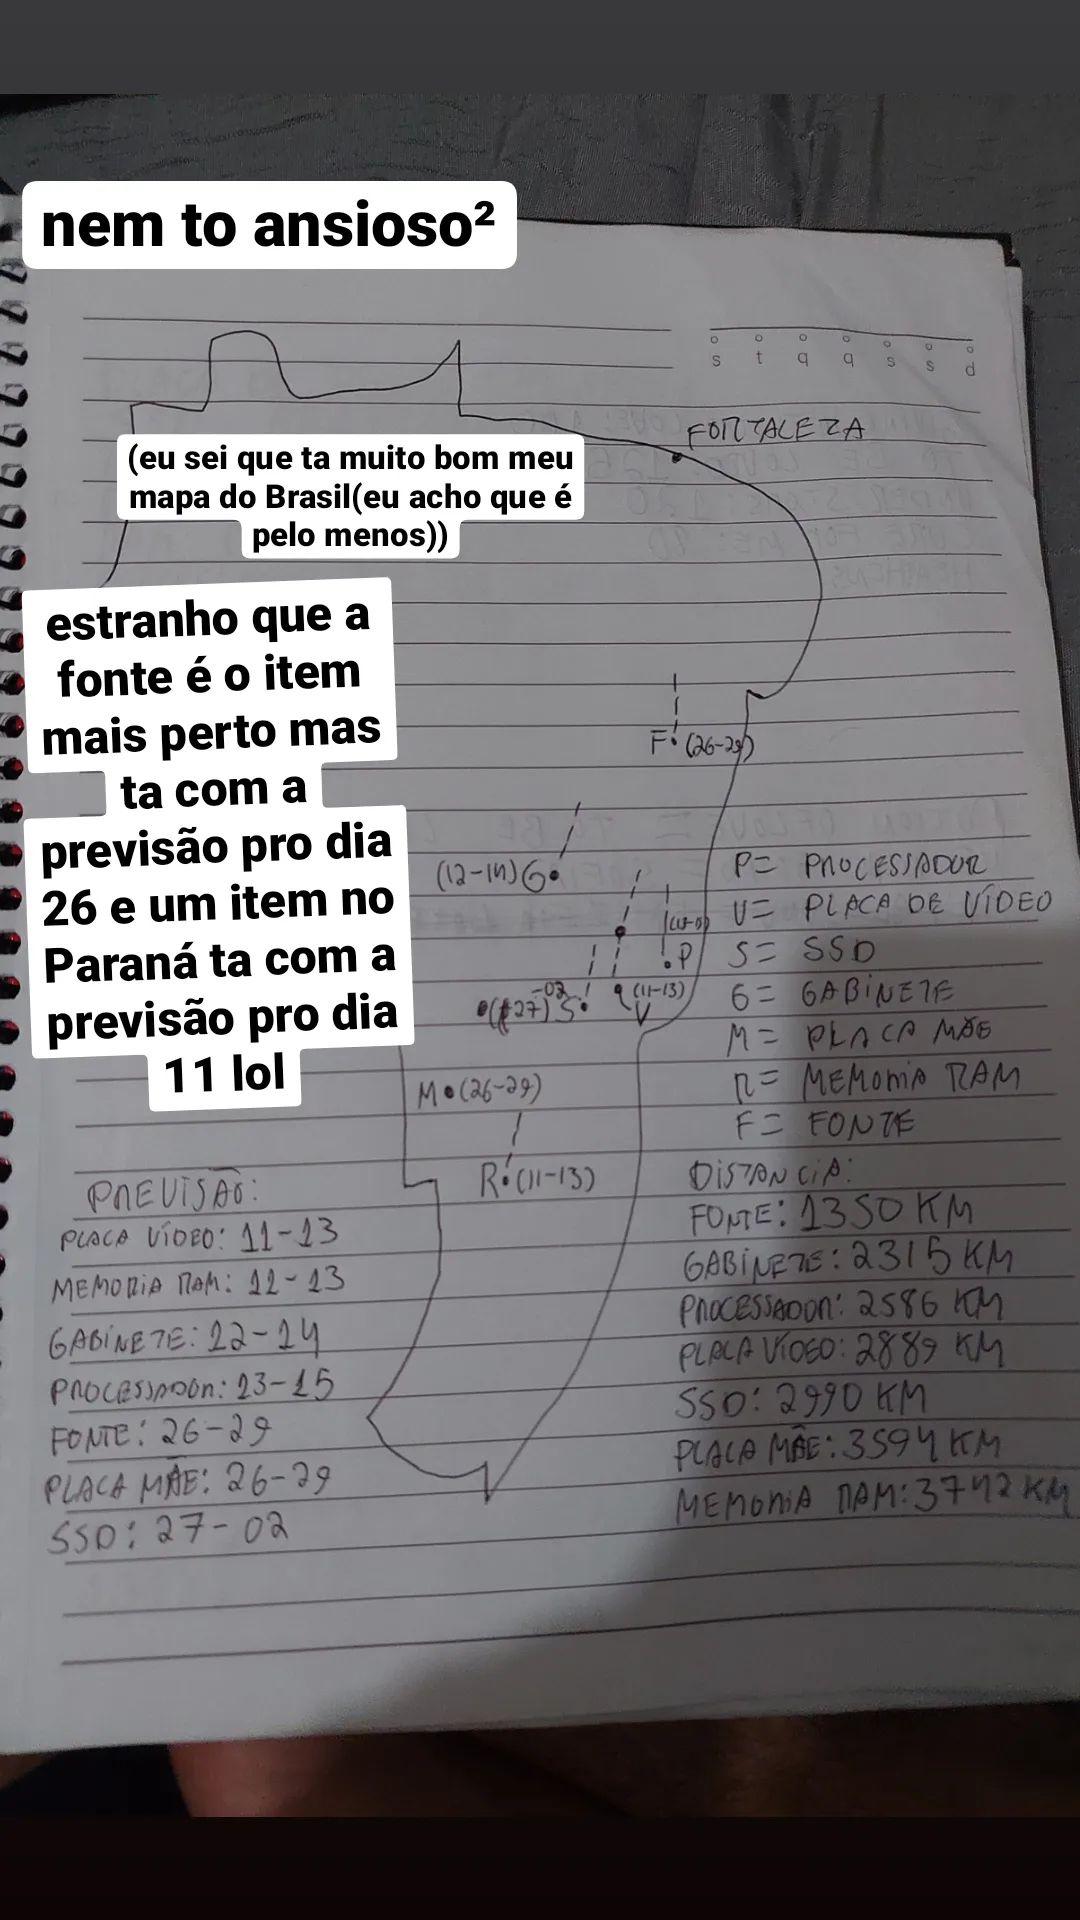 nem to ansioso²
s t q q s s d
FORTALEZA
(eu sei que ta muito bom meu
mapa do Brasil(eu acho que é
pelo menos))
estranho que a
fonte é o item
mais perto mas
ta com a
previsão pro dia
26 e um item no
Paraná ta com a
previsão pro dia
11 lol
F (26-29)
(12-14) G
P
(27-02) S
(11-13)
V
M (26-29)
R (11-13)
P= PROCESSADOR
V= PLACA DE VÍDEO
S= SSD
G= GABINETE
M= PLACA MÃE
R= MEMORIA RAM
F= FONTE
PREVISÃO:
PLACA VÍDEO: 11-13
MEMORIA RAM: 11-13
GABINETE: 12-14
PROCESSADOR: 13-15
FONTE: 26-29
PLACA MÃE: 26-29
SSD: 27-02
DISTANCIA:
FONTE: 1350 KM
GABINETE: 2315 KM
PROCESSADOR: 2586 KM
PLACA VÍDEO: 2889 KM
SSD: 2990 KM
PLACA MÃE: 3594 KM
MEMORIA RAM: 3742 KM